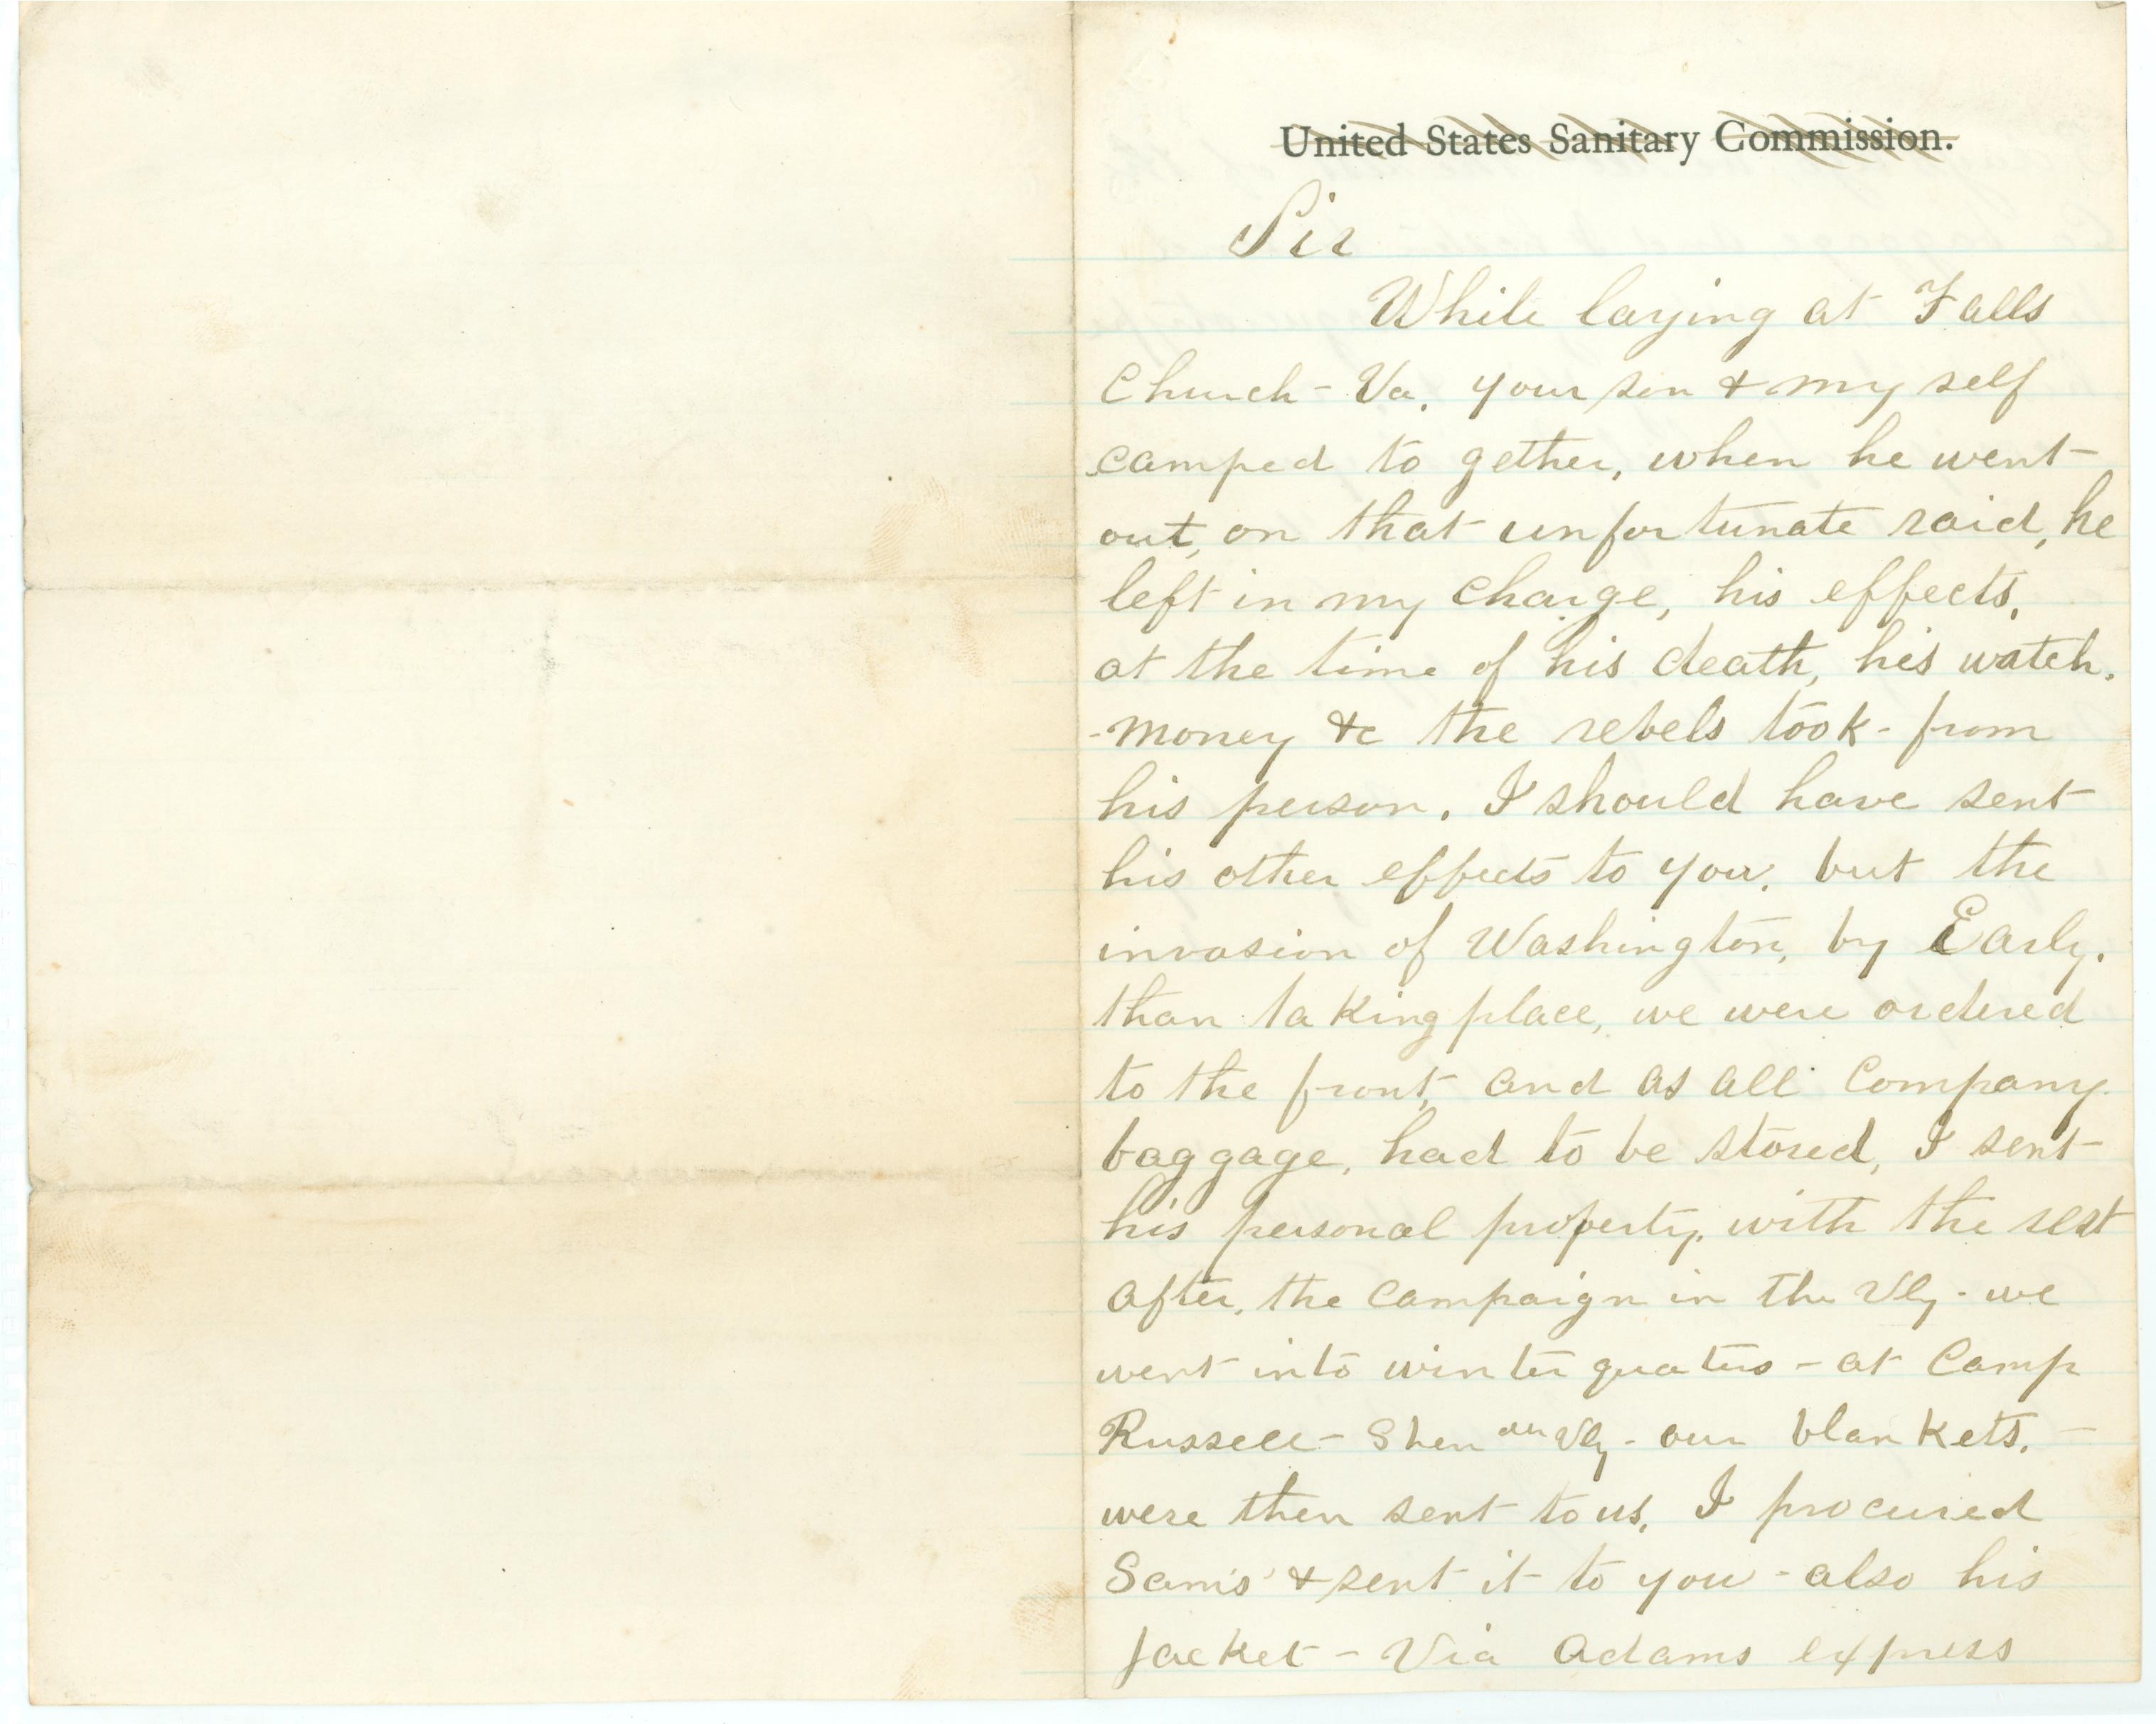 United States Sanitary Commission.
Sir
While laying at Falls
Church - Va. your son & my self
camped to gether, when he went
out, on that unfortunate raid, he
left in my charge, his effects,
at the time of his death, his watch.
- money &c the rebels took - from
his person. I should have sent
his other effects to you, but the
invasion of Washington, by Early.
than taking place, we were ordered
to the front, and as all Company
baggage, had to be stored, I sent
his personal property, with the rest
after, the Campaign in the Vly - we
went into winter quaters - at Camp
Russell - Shen Vly - our blankets. -
were then sent to us, I procured
Sam's & sent it to you - also his
jacket - Via Adams express